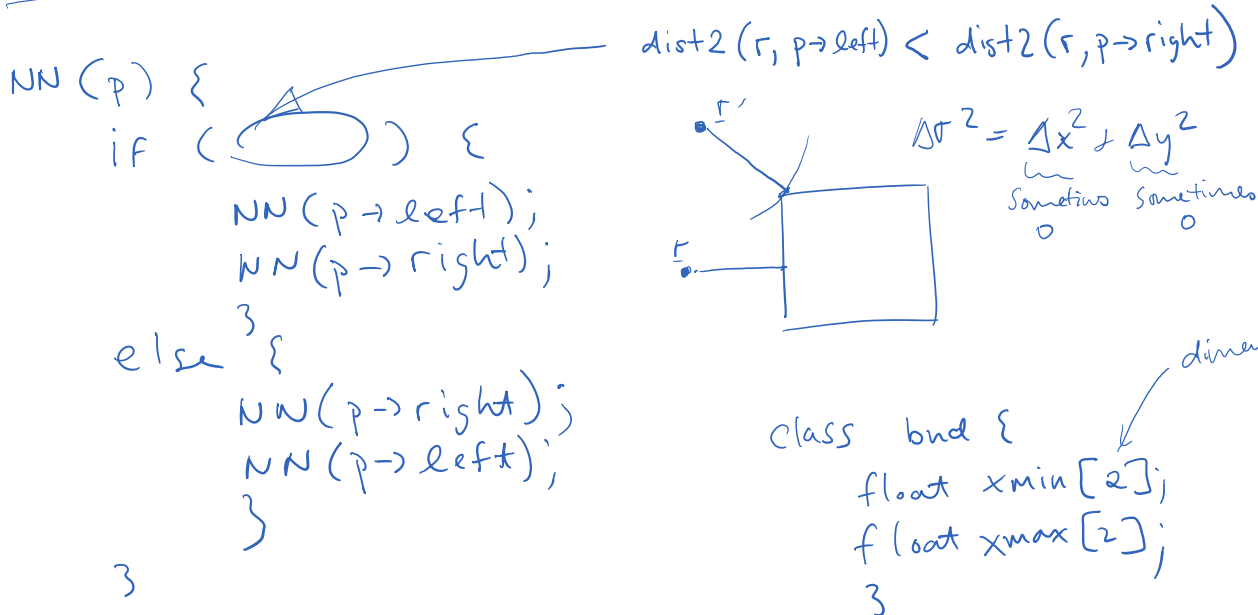 NN (p) {
if ( ) {
NN (p → left);
NN (p → right);
}
else {
NN (p → right);
NN (p → left);
}
}
dist2 (r, p → left) < dist2 (r, p → right)
r'
r
Δr² = Δx² + Δy²
Sometimes Sometimes
0 0
class bnd {
float xmin [2];
float xmax [2];
}